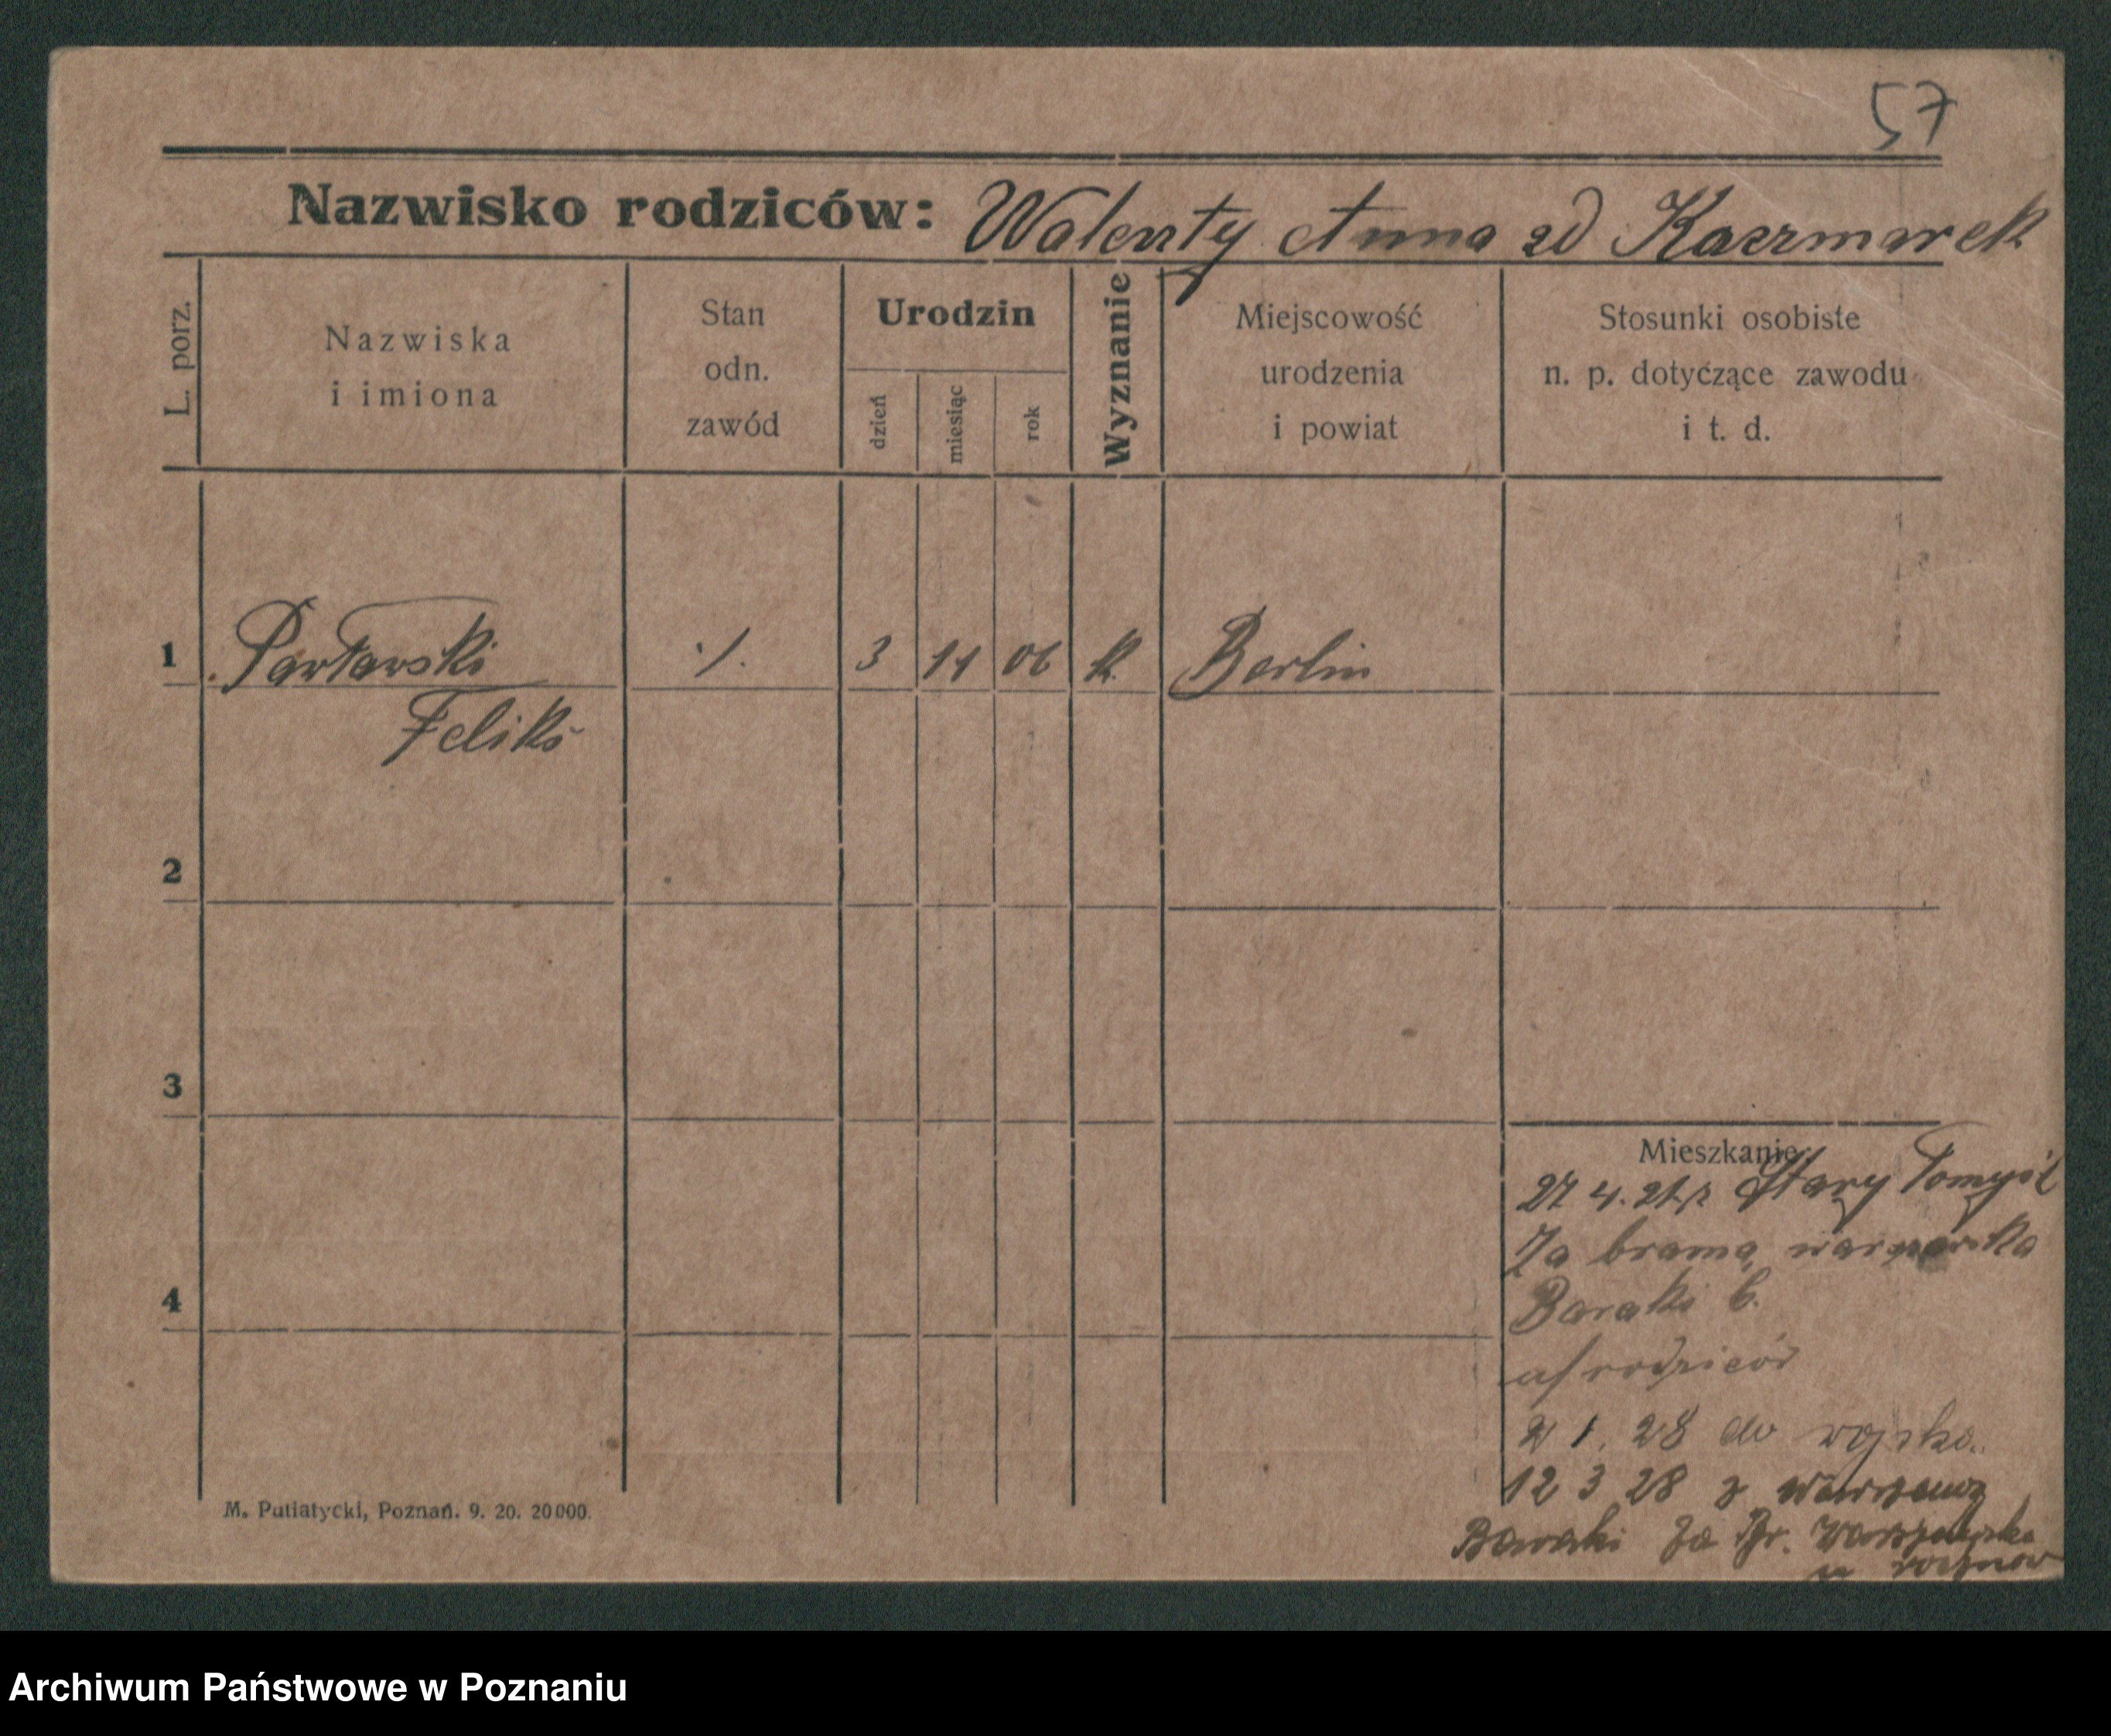 57
Nazwisko rodziców: Walenty Anna zd Kaczmarek
L. porz.
Nazwiska
i imiona
Stan
odn.
zawód
Urodzin
dzień
miesiąc
rok
Wyznanie
Miejscowość
urodzenia
i powiat
Stosunki osobiste
n. p. dotyczące zawodu
i t. d.
1 Pawławski ·/. 3 11 06 k. Berlin
Feliks
2
3
4
Mieszkanie:
27 4. 21. z Stary Tomyśl
Za bramą warszawska
Baraki 6.
rodziców
2 1. 28 do wojska.
12 3 28 z Warszawy
Baraki za Br. Warszawska
u
M. Putiatycki, Poznań. 9. 20. 20000.
Archiwum Państwowe w Poznaniu